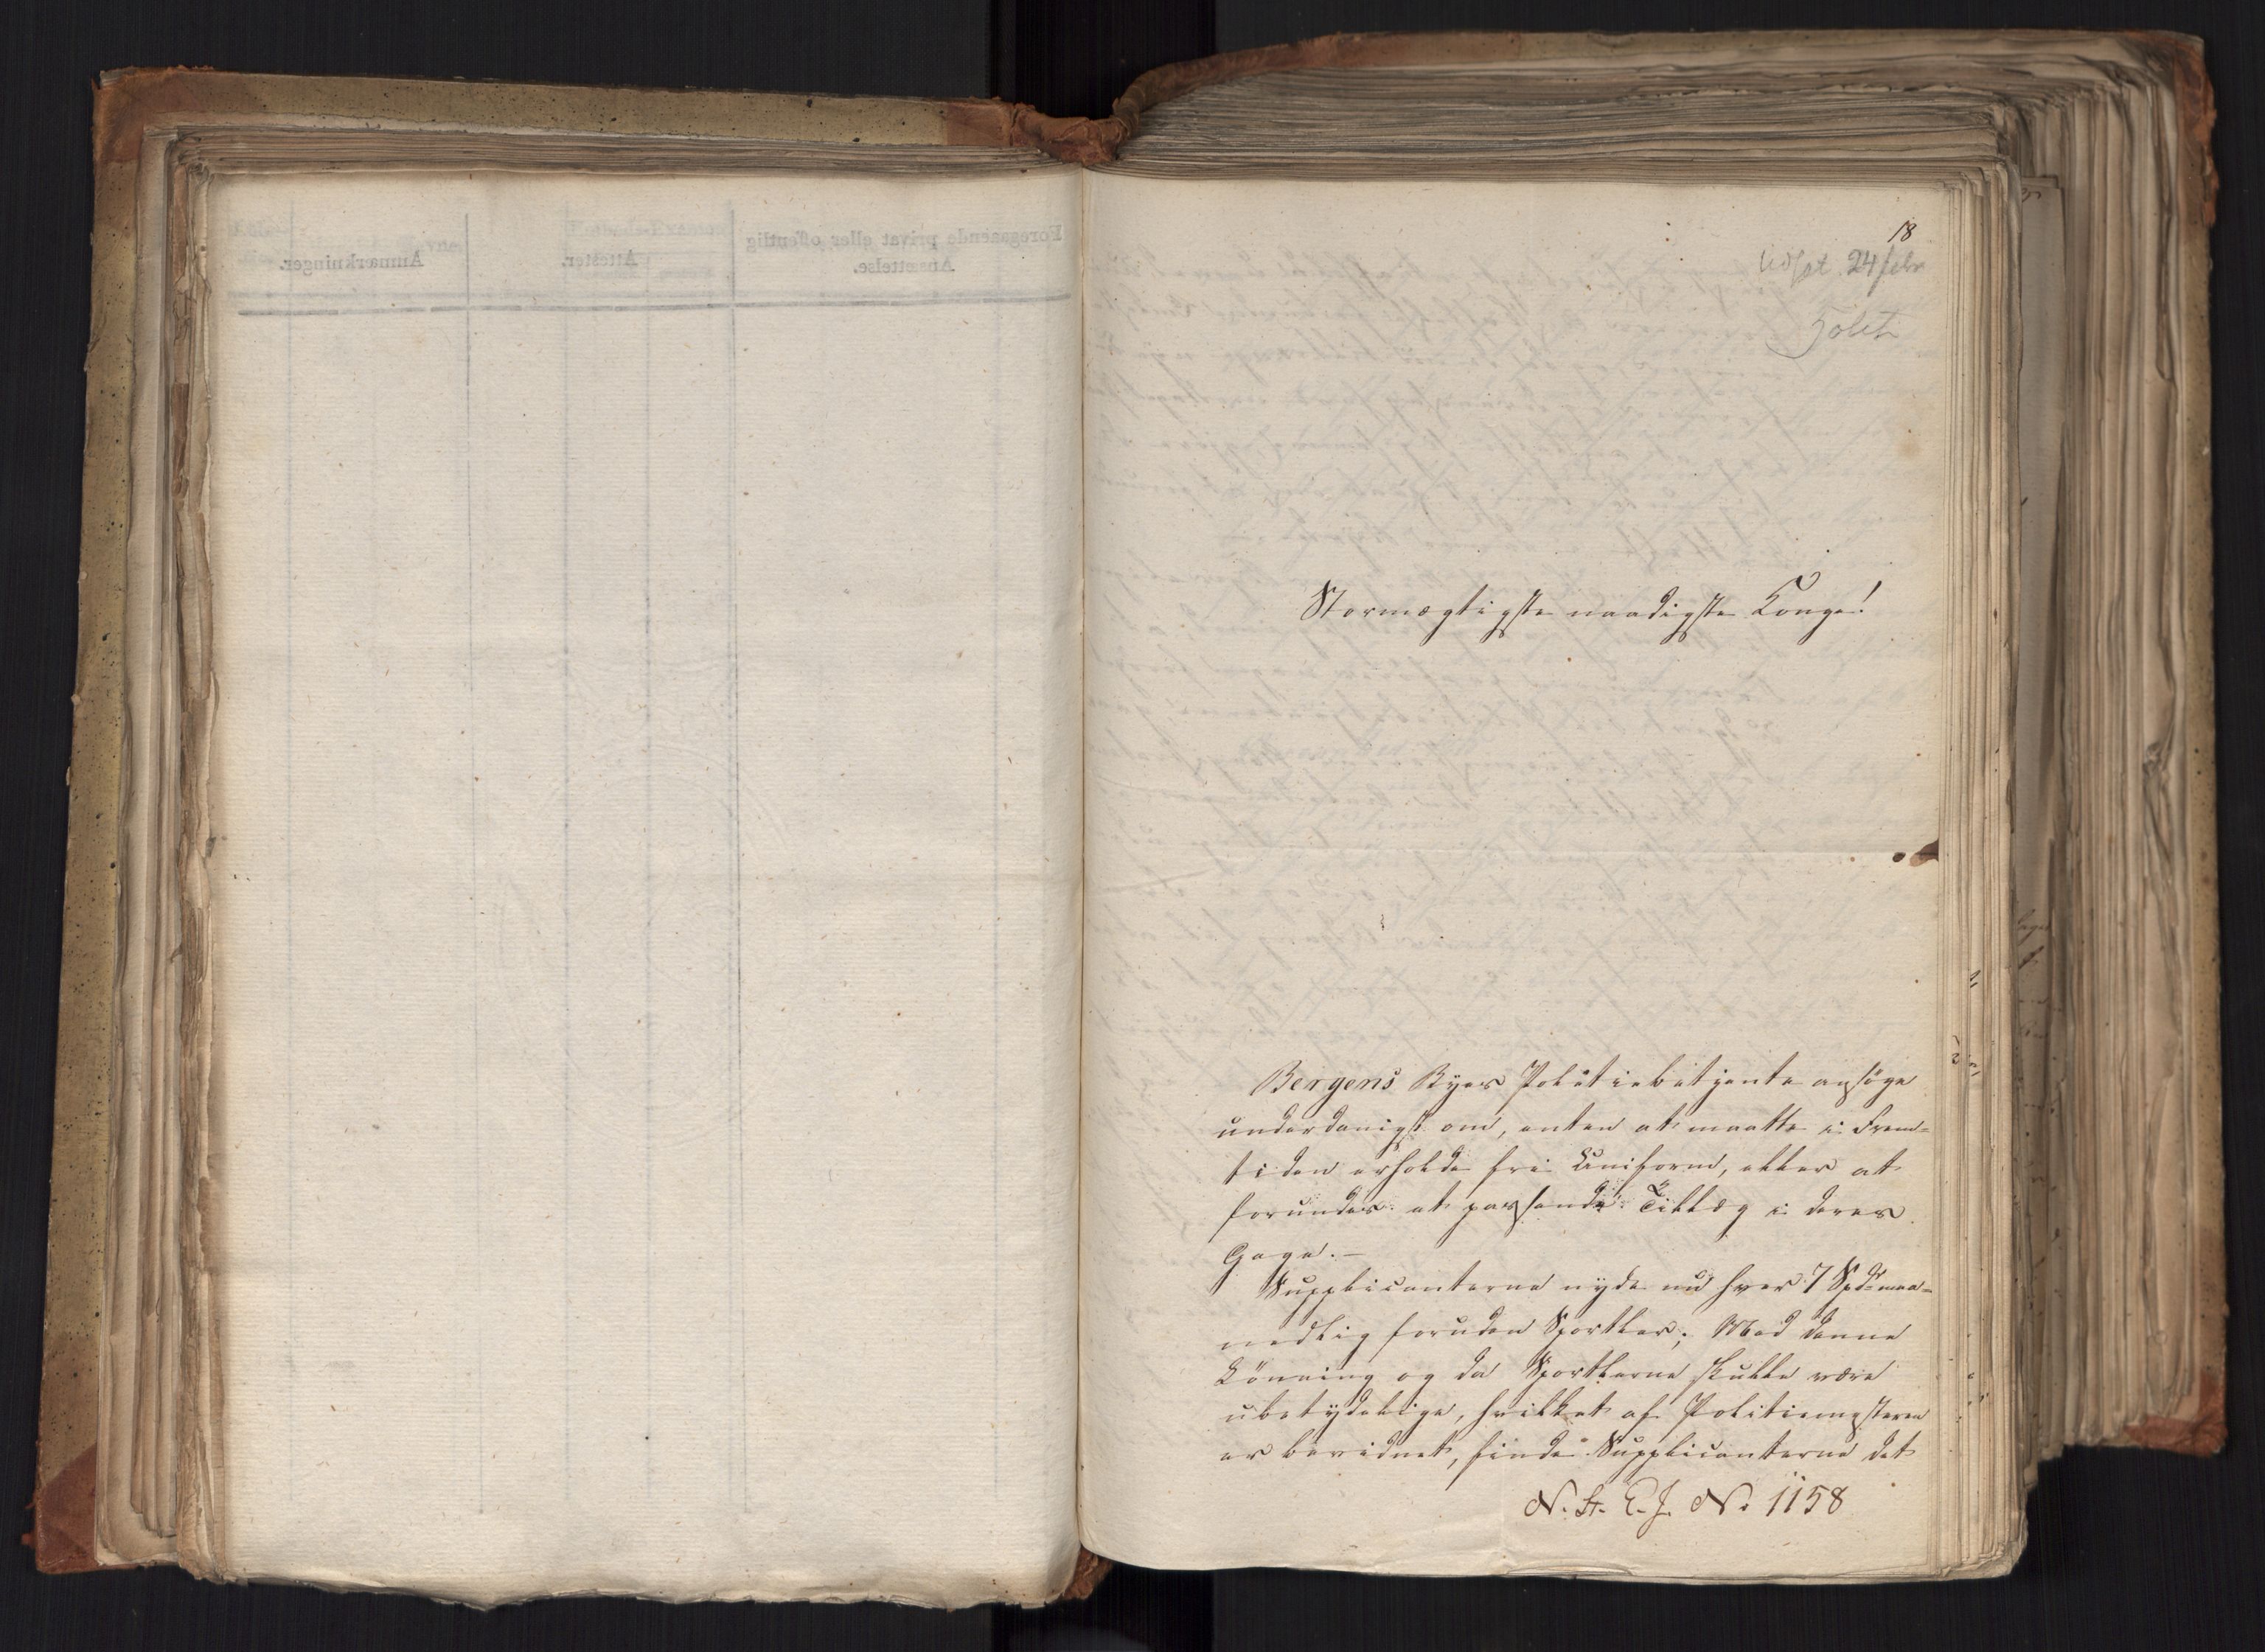 18
Udsat 24 febr
Stormægtigste naadigste Konge!
Bergens Byes Politiebetjente ansøge
underdanigst om, enten at maatte i Frem=
tiden erholde frie Uniform, eller at
forundes et passende Tillæg i deres
Gage. —
Supplicanterne nyde nu hver 7 Spd: maa=
nedlig foruden Sportler; Med denne
Lønning og da Sportlerne skulle være
ubetydelige, hvilket af Politiemesteren
er bevidnet, finde Supplicanterne det
N. St. E. J. No 1158